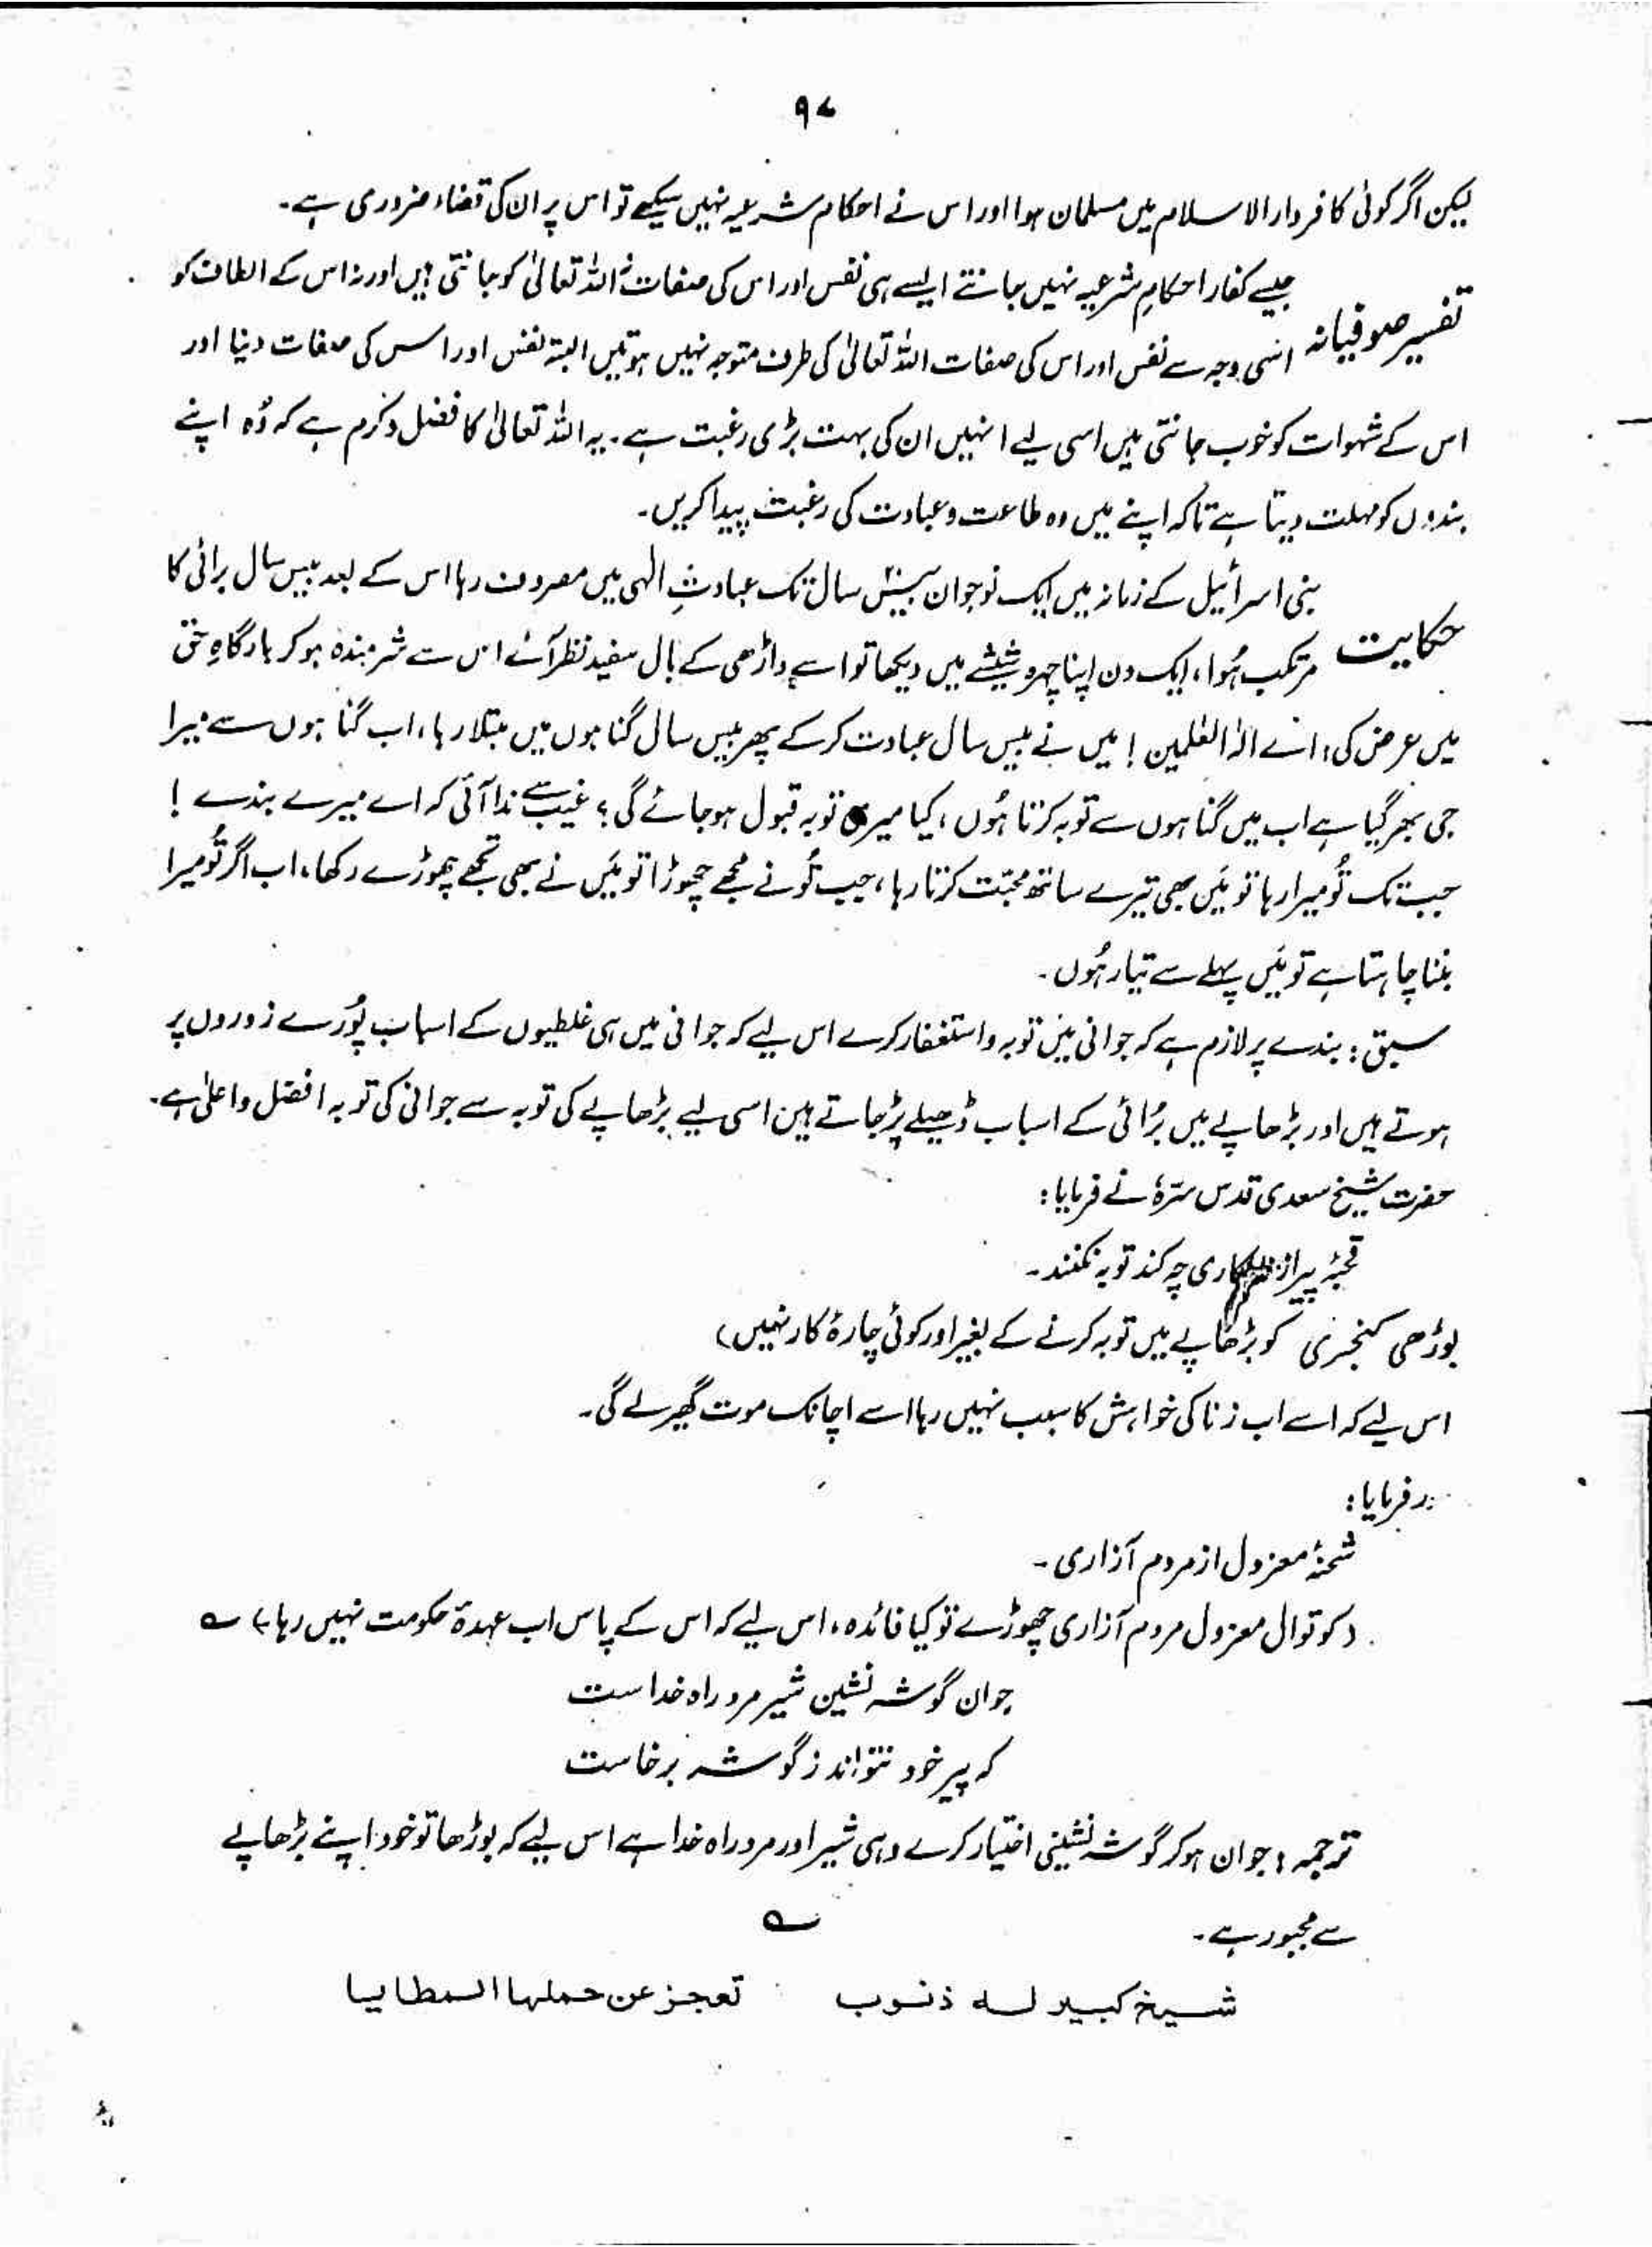 ۹۷
لیکن اگر کوئی کافر دارالاسلام میں مسلمان ہوا اور اس نے احکام شرعیہ نہیں سیکھے تو اس پر ان کی قضاء ضروری ہے۔
جیسے کفار احکامِ شرعیہ نہیں جانتے ایسے ہی نفس اور اس کی صفات نہ اللہ تعالیٰ کو جانتی ہیں اور نہ اس کے الطاف کو
تفسیر صوفیانہ اسی وجہ سے نفس اور اس کی صفات اللہ تعالیٰ کی طرف متوجہ نہیں ہوتیں البتہ نفس اور اس کی صفات دنیا اور
اس کے شہوات کو خوب جانتی ہیں اسی لیے انہیں ان کی بہت بڑی رغبت ہے۔ یہ اللہ تعالیٰ کا فضل و کرم ہے کہ وُہ اپنے
بندوں کو مہلت دیتا ہے تاکہ اپنے میں وہ طاعت و عبادت کی رغبت پیدا کریں۔
بنی اسرائیل کے زمانہ میں ایک نوجوان بیس سال تک عبادتِ الٰہی میں مصروف رہا اس کے بعد بیس سال برائی کا
حکایت مرتکب ہُوا، ایک دن اپنا چہرہ شیشے میں دیکھا تو اسے داڑھی کے بال سفید نظر آئے اس سے شرمندہ ہو کر بارگاہِ حق
میں عرض کی: اے الٰہ العٰلمین! میں نے بیس سال عبادت کر کے پھر بیس سال گناہوں میں مبتلا رہا، اب گناہوں سے میرا
جی بھر گیا ہے اب میں گناہوں سے توبہ کرتا ہُوں، کیا میری توبہ قبول ہو جائے گی؟ غیب سے ندا آئی کہ اے میرے بندے!
جب تک تُو میرا رہا تو مَیں بھی تیرے ساتھ محبّت کرتا رہا، جب تُو نے مجھے چھوڑا تو مَیں نے بھی تجھے چھوڑے رکھا، اب اگر تُو میرا
بننا چاہتا ہے تو مَیں پہلے سے تیار ہُوں۔
سبق: بندے پر لازم ہے کہ جوانی میں توبہ و استغفار کرے اس لیے کہ جوانی میں ہی غلطیوں کے اسباب پُورے زوروں پر
ہوتے ہیں اور بڑھاپے میں بُرائی کے اسباب ڈھیلے پڑ جاتے ہیں اسی لیے بڑھاپے کی توبہ سے جوانی کی توبہ افضل و اعلیٰ ہے۔
حضرت شیخ سعدی قدس سرّہٗ نے فرمایا:
قحبۂ پیر از کاری چہ کند توبہ نکنند۔
بوڑھی کنجری کو بڑھاپے میں توبہ کرنے کے بغیر اور کوئی چارۂ کار نہیں)
اس لیے کہ اسے اب زنا کی خواہش کا سبب نہیں رہا اسے اچانک موت گھیر لے گی۔
ر فرمایا:
شحنۂ معزول از مردم آزاری۔
(کوتوال معزول مردم آزاری چھوڑے تو کیا فائدہ، اس لیے کہ اس کے پاس اب عہدۂ حکومت نہیں رہا۔) ؎
جوان گوشہ نشین شیر مرد راہ خداست
کہ پیر خود نتواند ز گوشہ برخاست
ترجمہ: جوان ہو کر گوشہ نشینی اختیار کرے وہی شیر اور مرد راہ خدا ہے اس لیے کہ بوڑھا تو خود اپنے بڑھاپے
سے مجبور ہے۔ ؎
شیخ کبیر لہ ذنوب تعجز عن حملہا المطایا